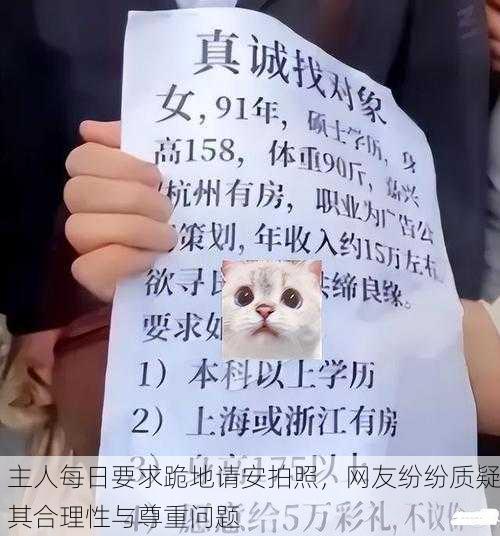 真诚找对象
女, 91年, 硕士学历, 身
高158, 体重90斤, 嘉兴
杭州有房, 职业为广告公
策划, 年收入约15万左右,
欲寻 缔良缘。
要求如
1) 本科以上学历
2) 上海或浙江有房
3) 身高175以上
主人每日要求跪地请安拍照，网友纷纷质疑
其合理性与尊重问题
给5万彩礼, 不议